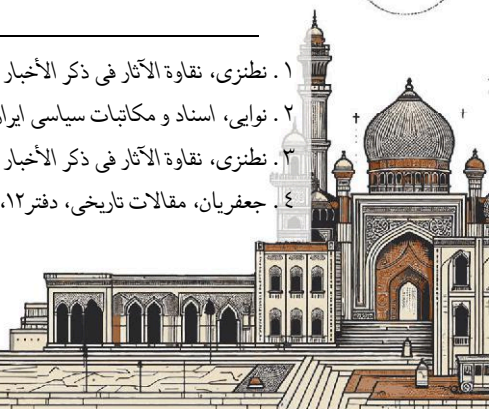 ١. نطنزی، نقاوة الآثار فی ذکر الأخبار
٢. نوایی، اسناد و مکاتبات سیاسی ایران
٣. نطنزی، نقاوة الآثار فی ذکر الأخبار
٤. جعفریان، مقالات تاریخی، دفتر١٢،